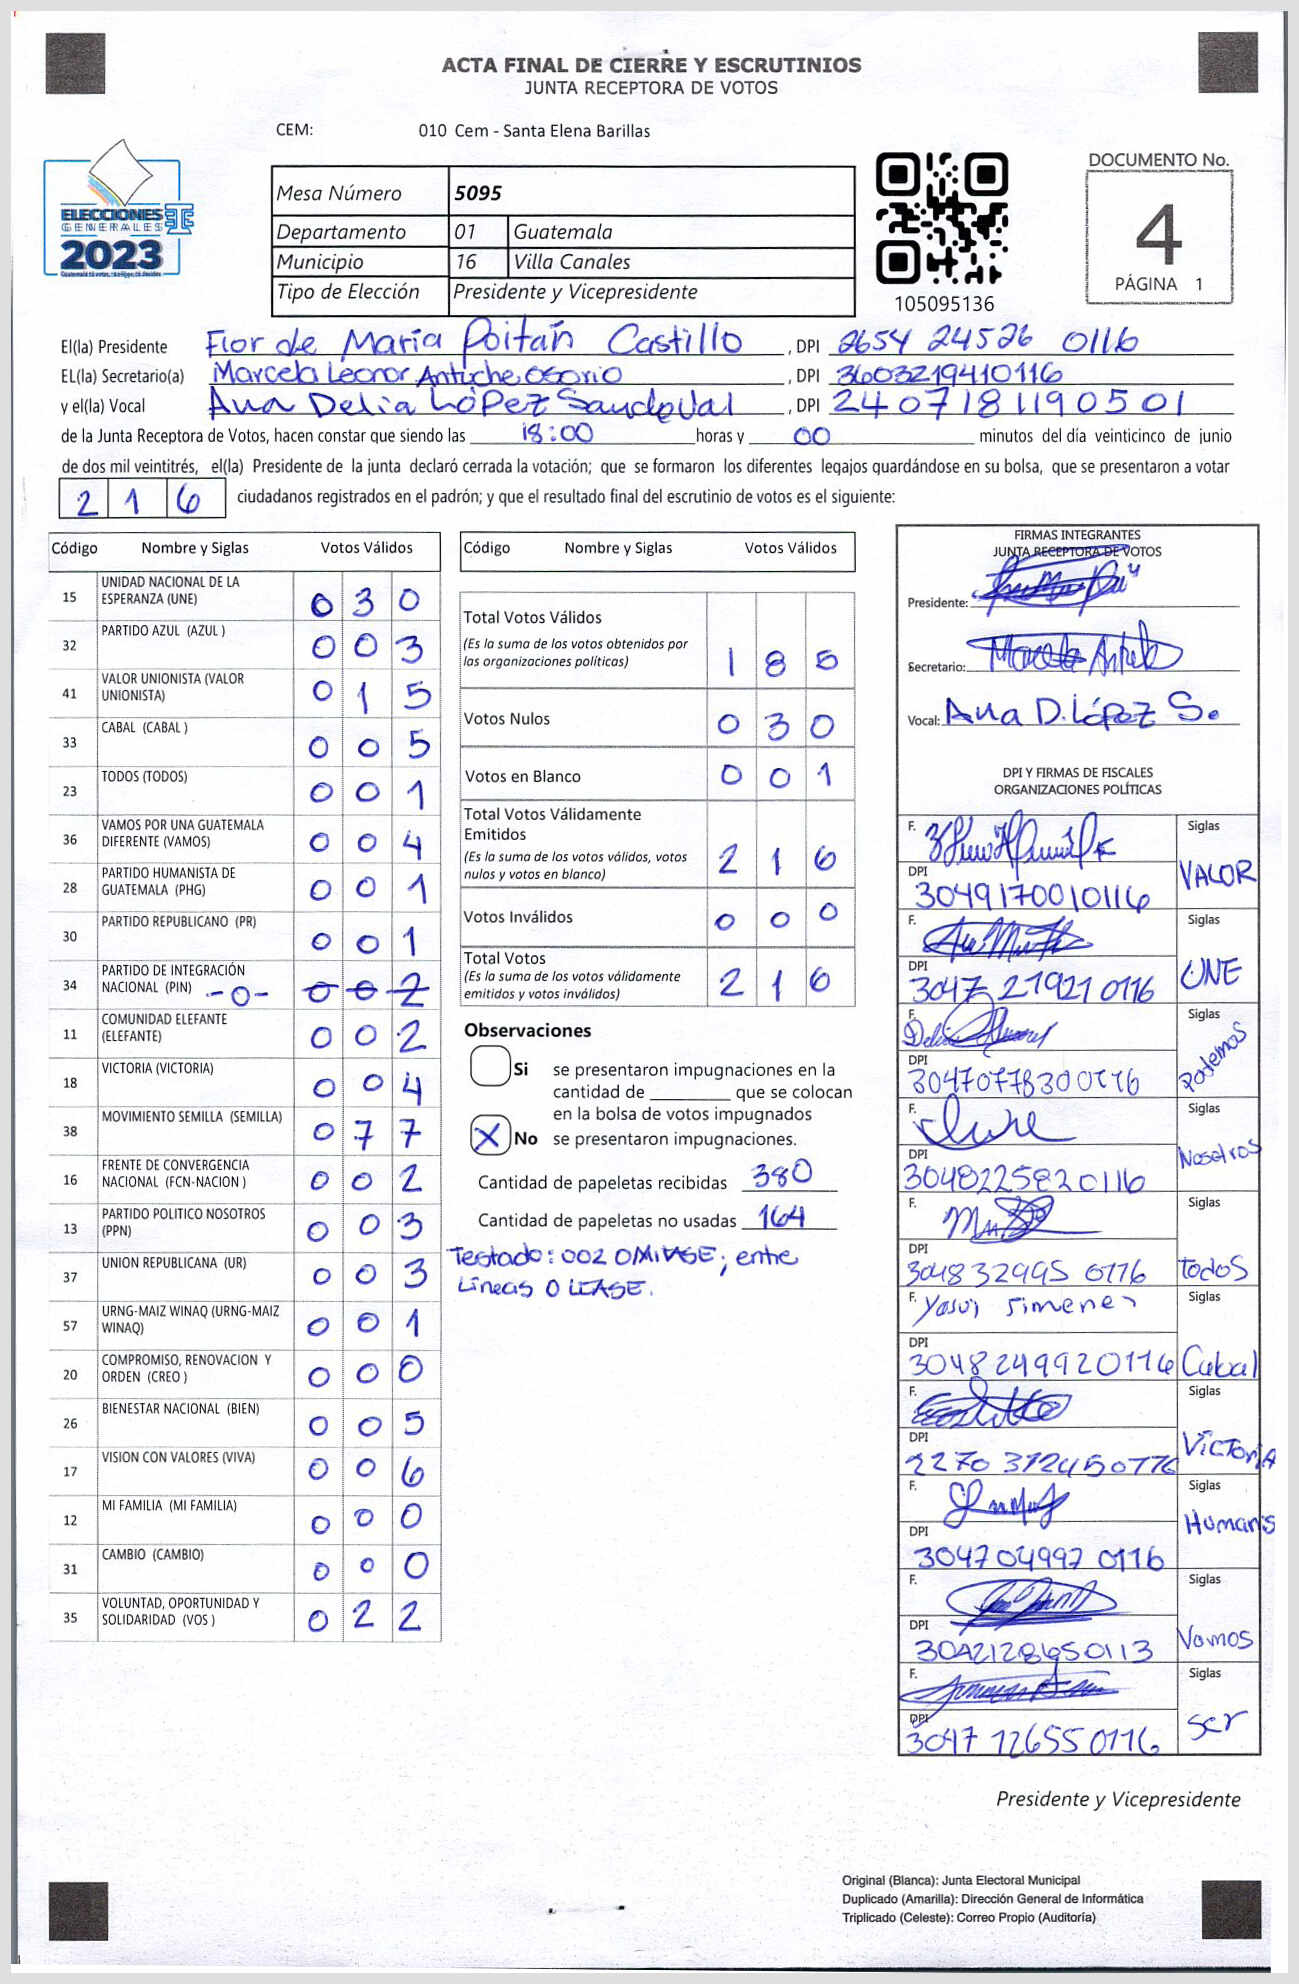 ACTA FINAL DE CIERRE Y ESCRUTINIOS
JUNTA RECEPTORA DE VOTOS
CEM: 010 Cem - Santa Elena Barillas
ELECCIONES
GENERALES
2023
Mesa Número 5095
Departamento 01 Guatemala
Municipio 16 Villa Canales
Tipo de Elección Presidente y Vicepresidente
105095136
DOCUMENTO No.
4
PÁGINA 1
El(la) Presidente Flor de María Poitán Castillo , DPI 2654 24526 0116
EL(la) Secretario(a) Marcela Leonor Antuche Osorio , DPI 3603219410116
y el(la) Vocal Ana Delia López Sandoval , DPI 2407181190501
de la Junta Receptora de Votos, hacen constar que siendo las 18:00 horas y 00 minutos del día veinticinco de junio
de dos mil veintitrés, el(la) Presidente de la junta declaró cerrada la votación; que se formaron los diferentes legajos guardándose en su bolsa, que se presentaron a votar
216 ciudadanos registrados en el padrón; y que el resultado final del escrutinio de votos es el siguiente:
Código Nombre y Siglas Votos Válidos
15 UNIDAD NACIONAL DE LA ESPERANZA (UNE) 030
32 PARTIDO AZUL (AZUL ) 003
41 VALOR UNIONISTA (VALOR UNIONISTA) 015
33 CABAL (CABAL ) 005
23 TODOS (TODOS) 001
36 VAMOS POR UNA GUATEMALA DIFERENTE (VAMOS) 004
28 PARTIDO HUMANISTA DE GUATEMALA (PHG) 001
30 PARTIDO REPUBLICANO (PR) 001
34 PARTIDO DE INTEGRACIÓN NACIONAL (PIN) -0- 002
11 COMUNIDAD ELEFANTE (ELEFANTE) 002
18 VICTORIA (VICTORIA) 004
38 MOVIMIENTO SEMILLA (SEMILLA) 077
16 FRENTE DE CONVERGENCIA NACIONAL (FCN-NACION ) 002
13 PARTIDO POLITICO NOSOTROS (PPN) 003
37 UNION REPUBLICANA (UR) 003
57 URNG-MAIZ WINAQ (URNG-MAIZ WINAQ) 001
20 COMPROMISO, RENOVACION Y ORDEN (CREO ) 000
26 BIENESTAR NACIONAL (BIEN) 005
17 VISION CON VALORES (VIVA) 006
12 MI FAMILIA (MI FAMILIA) 000
31 CAMBIO (CAMBIO) 000
35 VOLUNTAD, OPORTUNIDAD Y SOLIDARIDAD (VOS ) 022
Código Nombre y Siglas Votos Válidos
Total Votos Válidos
(Es la suma de los votos obtenidos por
las organizaciones políticas) 185
Votos Nulos 030
Votos en Blanco 001
Total Votos Válidamente
Emitidos
(Es la suma de los votos válidos, votos
nulos y votos en blanco) 216
Votos Inválidos 000
Total Votos
(Es la suma de los votos válidamente
emitidos y votos inválidos) 216
Observaciones
Si se presentaron impugnaciones en la
cantidad de ________ que se colocan
en la bolsa de votos impugnados
X No se presentaron impugnaciones.
Cantidad de papeletas recibidas 380
Cantidad de papeletas no usadas 164
Testado: 002 OMITASE; entre
Lineas 0 LEASE.
FIRMAS INTEGRANTES
JUNTA RECEPTORA DE VOTOS
Presidente:
Secretario:
Vocal: Ana D. López S.
DPI Y FIRMAS DE FISCALES
ORGANIZACIONES POLÍTICAS
F. Siglas
DPI 3049170010116 VALOR
F. Siglas
DPI 3047 21921 0116 UNE
F. Siglas
DPI 3047077830116 Podemos
F. Siglas
DPI 3048225820116 Nosotros
F. Siglas
DPI 304832995 0116 todos
F. Yasmi Jimenez Siglas
DPI 3048249920116 Cabal
F. Siglas
DPI 2270 372450776 VICTORIA
F. Siglas
DPI 304704997 0116 Humanis
F. Siglas
DPI 3042128650113 Vamos
F. Siglas
DPI 3047 126550116 Ser
Presidente y Vicepresidente
Original (Blanca): Junta Electoral Municipal
Duplicado (Amarilla): Dirección General de Informática
Triplicado (Celeste): Correo Propio (Auditoría)